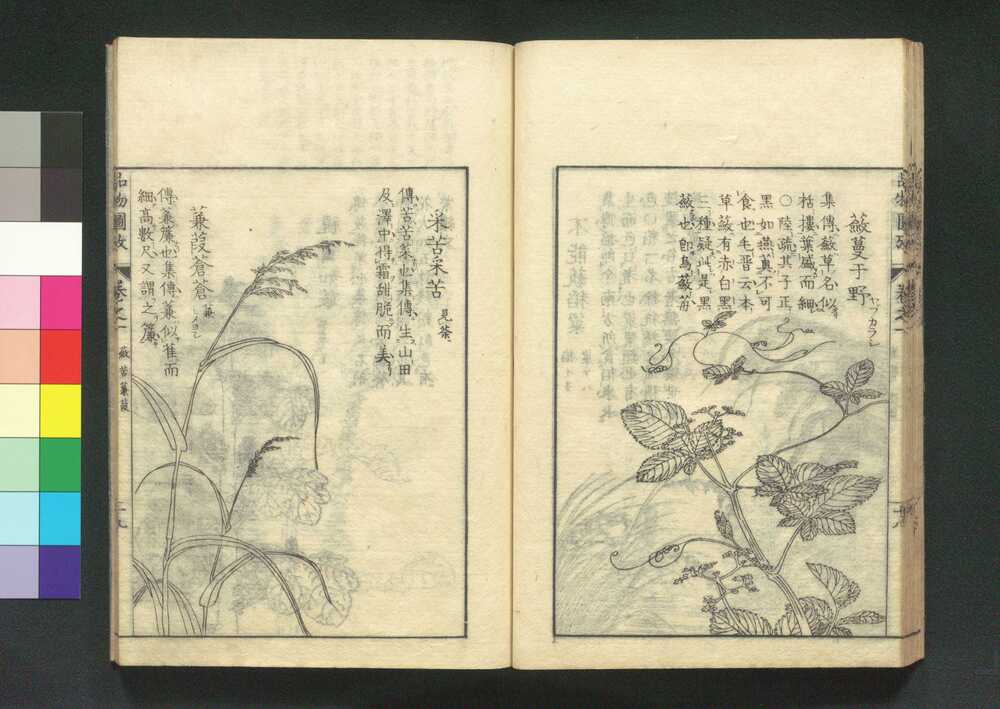 蘞蔓于野
ヤブカラシ
集傳蘞草名似
栝樓葉盛而細
○陸疏其子正
黒如燕薁不可
食也毛晋云本
草蘞有赤白黒
三種疑此是黒
蘞也卽烏蘞苺
采苦采苦
見荼
傳苦苦菜也集傳生山田
及澤中得霜甜脆而美
蒹葭蒼蒼
傳蒹薕也集傳蒹似萑而
細高數尺又謂之薕
品物圖攷
卷之一
蘞苦蒹葭
十九